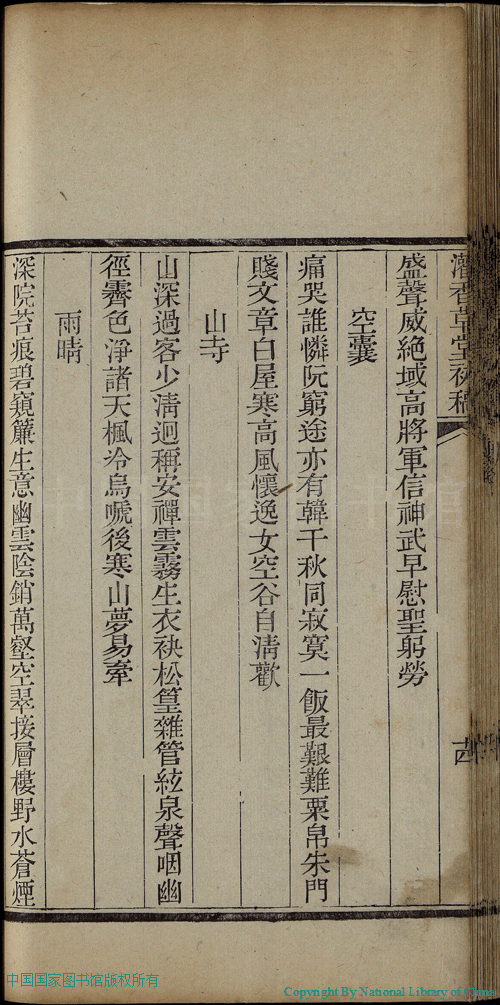 盛聲威絶域高將軍信神武早慰聖躬勞
空囊
痛哭誰憐阮窮途亦有韓千秋同寂寞一飯最艱難粟帛朱門
賤文章白屋寒高風懷逸女空谷自淸歡
山寺
山深過客少淸迥稱安禪雲霧生衣袂松篁雜管絃泉聲咽幽
徑霽色淨諸天楓冷烏嗁後寒山夢易牽
雨晴
深院苔痕碧窺簾生意幽雲陰銷萬壑空翠接層樓野水蒼煙
中国国家图书馆版权所有
Copyright By National Library of China